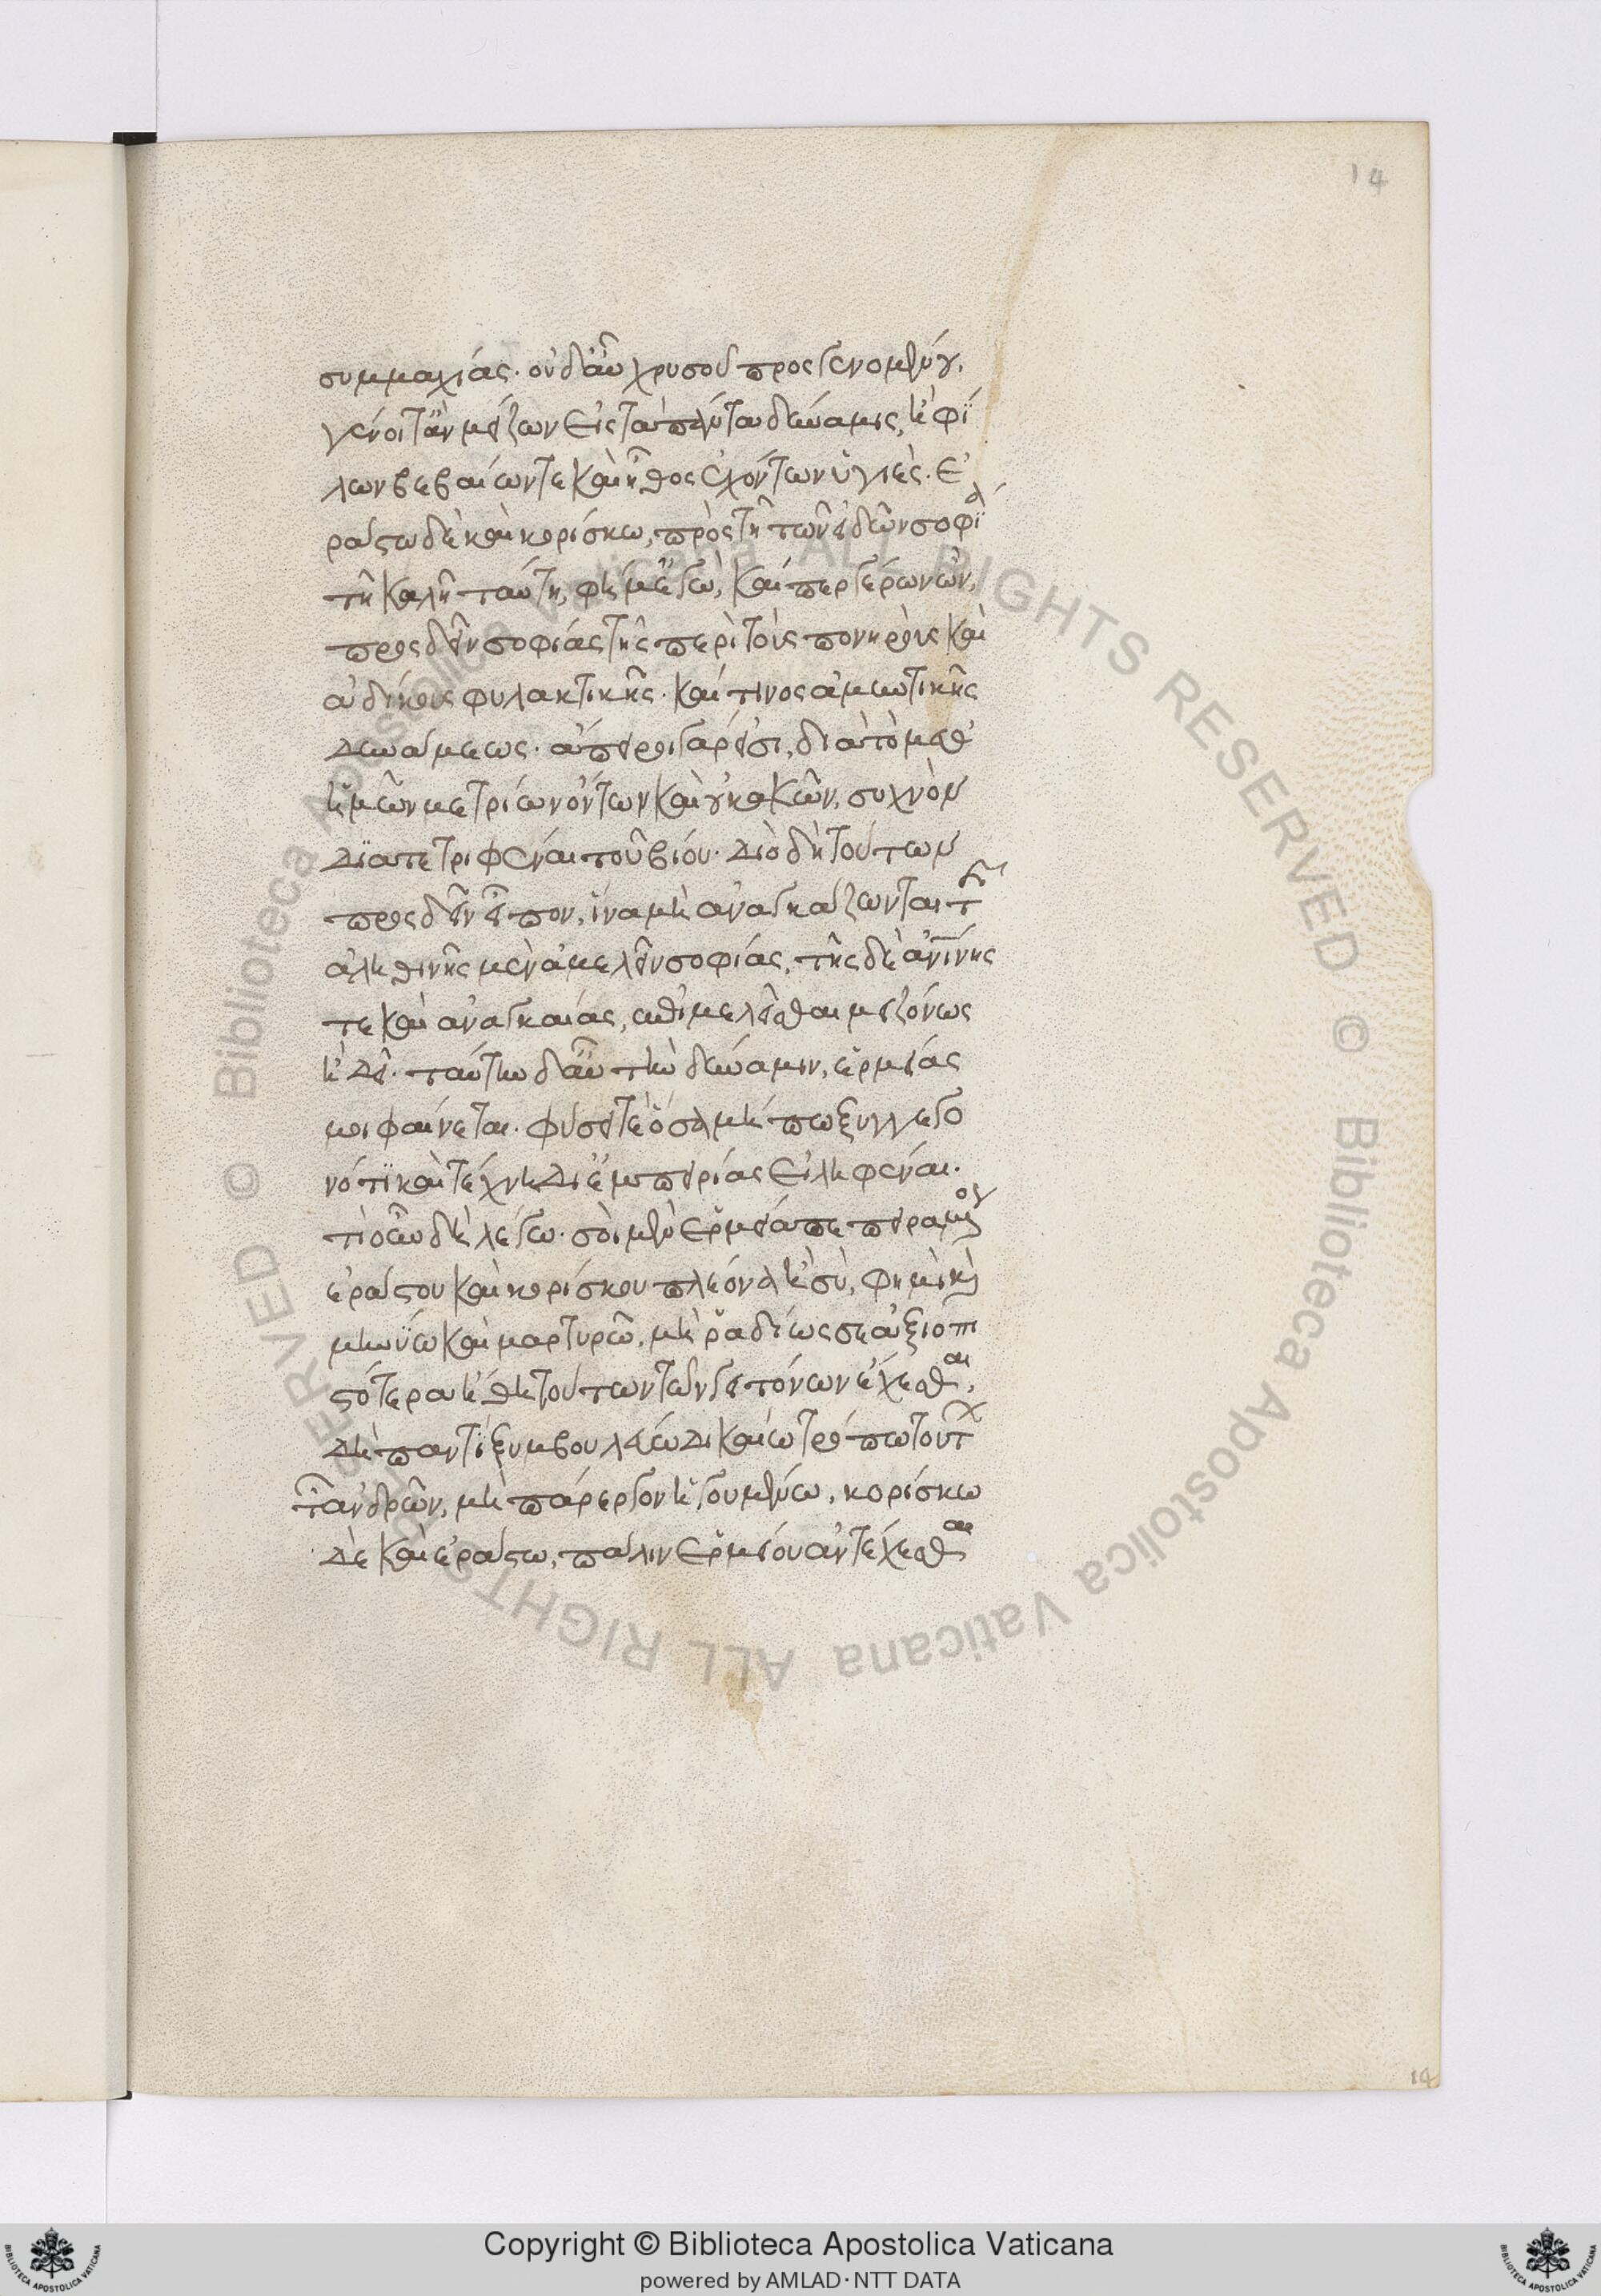 14
συμμαχίας. οὐδ' αὖ χρυσοῦ προσγενομένου,
γένοιτ' ἂν μείζων εἰς τὰ πάντα δύναμις, ἢ φί
λων βεβαίων τε καὶ ἦθος ἐχόντων ὑγιές. ἐ
ράστω δὲ καὶ κορίσκω, πρὸς τῆ τῶν εἰδῶν σοφία
τῆ καλῆ ταύτη, φήμ' ἐγώ, καίπερ γέρων ὢν,
προσδεῖν σοφίας τῆς περὶ τοὺς πονηροὺς καὶ
ἀδίκους φυλακτικῆς. καί τινος ἀμυντικῆς
δυνάμεως. ἄπειροι γάρ εἰσι, διὰ τὸ μεθ'
ἡμῶν μετρίων ὄντων καὶ οὐ κακῶν, συχνὸν
διατετριφέναι τοῦ βίου. διὸ δὴ τούτων
προσδεῖν εἶπον, ἵνα μὴ ἀναγκάζωνται τῆς
ἀληθινῆς μὲν ἀμελεῖν σοφίας, τῆς δὲ ἀνίνης
τε καὶ ἀναγκαίας, ἐπιμελεῖσθαι μειζόνως
ἢ δεῖ. ταύτην δ' αὖ τὴν δύναμιν, ἑρμείας
μοι φαίνεται. φύσει τε ὅσα μήπω ξυγγεγο
νότι καὶ τέχνη δι' ἐμπειρίας εἰληφέναι.
τί οὖν δὴ λέγω. σοὶ μὲν ἑρμεία πεπειραμένος
ἐράστου καὶ κορίσκου πλέονα ἢ σὺ, φημὶ καὶ
μηνύω καὶ μαρτυρῶ, μὴ ῥαδίως σε ἀξιοπι
στότερα ἤθη τούτων τῶν γειτόνων εὑρήσειν. ἔχεσθαι
δὴ παντὶ ξυμβουλεύω δικαίω τρόπω τούτων
τῶν ἀνδρῶν, μὴ πάρεργον ἡγουμένω, κορίσκω
δὲ καὶ ἐράστω, πάλιν ἑρμείου ἀντέχεσθαι
14
© Biblioteca Apostolica Vaticana ALL RIGHTS RESERVED © Biblioteca Apostolica Vaticana ALL RIGHTS RESERVED
Copyright © Biblioteca Apostolica Vaticana
powered by AMLAD·NTT DATA